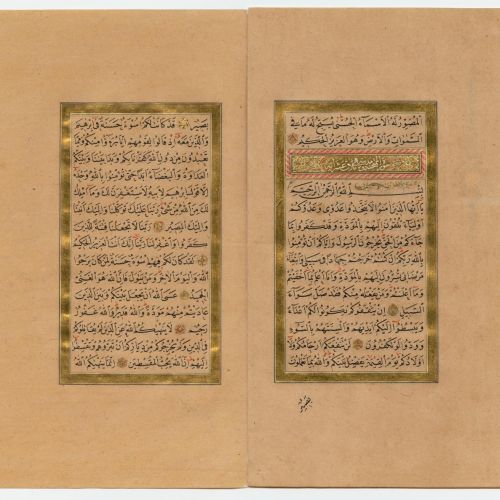 الْمُصَوِّرُ لَهُ الْاَسْمَاءُ الْحُسْنٰى يُسَبِّحُ لَهُ مَا فِي
السَّمٰوَاتِ وَالْاَرْضِ وَهُوَ الْعَزِيزُ الْحَكِيمُ
بِسْمِ اللهِ الرَّحْمٰنِ الرَّحِيمِ
يَا اَيُّهَا الَّذِينَ اٰمَنُوا لَا تَتَّخِذُوا عَدُوِّى وَعَدُوَّكُمْ
اَوْلِيَاءَ تُلْقُونَ اِلَيْهِمْ بِالْمَوَدَّةِ وَقَدْ كَفَرُوا بِمَا
جَاءَكُمْ مِنَ الْحَقِّ يُخْرِجُونَ الرَّسُولَ وَاِيَّاكُمْ اَنْ تُؤْمِنُوا
بِاللهِ رَبِّكُمْ اِنْ كُنْتُمْ خَرَجْتُمْ جِهَادًا فِي سَبِيلِي وَابْتِغَاءَ
مَرْضَاتِي تُسِرُّونَ اِلَيْهِمْ بِالْمَوَدَّةِ وَاَنَا اَعْلَمُ بِمَا اَخْفَيْتُمْ
وَمَا اَعْلَنْتُمْ وَمَنْ يَفْعَلْهُ مِنْكُمْ فَقَدْ ضَلَّ سَوَاءَ
السَّبِيلِ اِنْ يَثْقَفُوكُمْ يَكُونُوا لَكُمْ اَعْدَاءً
وَيَبْسُطُوا اِلَيْكُمْ اَيْدِيَهُمْ وَاَلْسِنَتَهُمْ بِالسُّوءِ
وَوَدُّوا لَوْ تَكْفُرُونَ لَنْ تَنْفَعَكُمْ اَرْحَامُكُمْ وَلَا
اَوْلَادُكُمْ يَوْمَ الْقِيٰمَةِ يَفْصِلُ بَيْنَكُمْ وَاللهُ بِمَا تَعْمَلُونَ
بصير
بَصِيرٌ قَدْ كَانَتْ لَكُمْ اُسْوَةٌ حَسَنَةٌ فِي اِبْرٰهِيمَ
وَالَّذِينَ مَعَهُ اِذْ قَالُوا لِقَوْمِهِمْ اِنَّا بُرَءٰؤُا مِنْكُمْ وَمِمَّا
تَعْبُدُونَ مِنْ دُونِ اللهِ كَفَرْنَا بِكُمْ وَبَدَا بَيْنَنَا وَبَيْنَكُمُ
الْعَدَاوَةُ وَالْبَغْضَاءُ اَبَدًا حَتّٰى تُؤْمِنُوا بِاللهِ وَحْدَهُ
اِلَّا قَوْلَ اِبْرٰهِيمَ لِاَبِيهِ لَاَسْتَغْفِرَنَّ لَكَ وَمَا اَمْلِكُ
لَكَ مِنَ اللهِ مِنْ شَيْءٍ رَبَّنَا عَلَيْكَ تَوَكَّلْنَا وَاِلَيْكَ اَنَبْنَا
وَاِلَيْكَ الْمَصِيرُ رَبَّنَا لَا تَجْعَلْنَا فِتْنَةً لِلَّذِينَ
كَفَرُوا وَاغْفِرْ لَنَا رَبَّنَا اِنَّكَ اَنْتَ الْعَزِيزُ الْحَكِيمُ
لَقَدْ كَانَ لَكُمْ فِيهِمْ اُسْوَةٌ حَسَنَةٌ لِمَنْ كَانَ يَرْجُوا
اللهَ وَالْيَوْمَ الْاٰخِرَ وَمَنْ يَتَوَلَّ فَاِنَّ اللهَ هُوَ الْغَنِىُّ
الْحَمِيدُ عَسَى اللهُ اَنْ يَجْعَلَ بَيْنَكُمْ وَبَيْنَ الَّذِينَ
عَادَيْتُمْ مِنْهُمْ مَوَدَّةً وَاللهُ قَدِيرٌ وَاللهُ غَفُورٌ
رَحِيمٌ لَا يَنْهٰيكُمُ اللهُ عَنِ الَّذِينَ لَمْ يُقَاتِلُوكُمْ
فِي الدِّينِ وَلَمْ يُخْرِجُوكُمْ مِنْ دِيَارِكُمْ اَنْ تَبَرُّوهُمْ وَتُقْسِطُوا
اِلَيْهِمْ اِنَّ اللهَ يُحِبُّ الْمُقْسِطِينَ اِنَّمَا يَنْهٰيكُمُ اللهُ